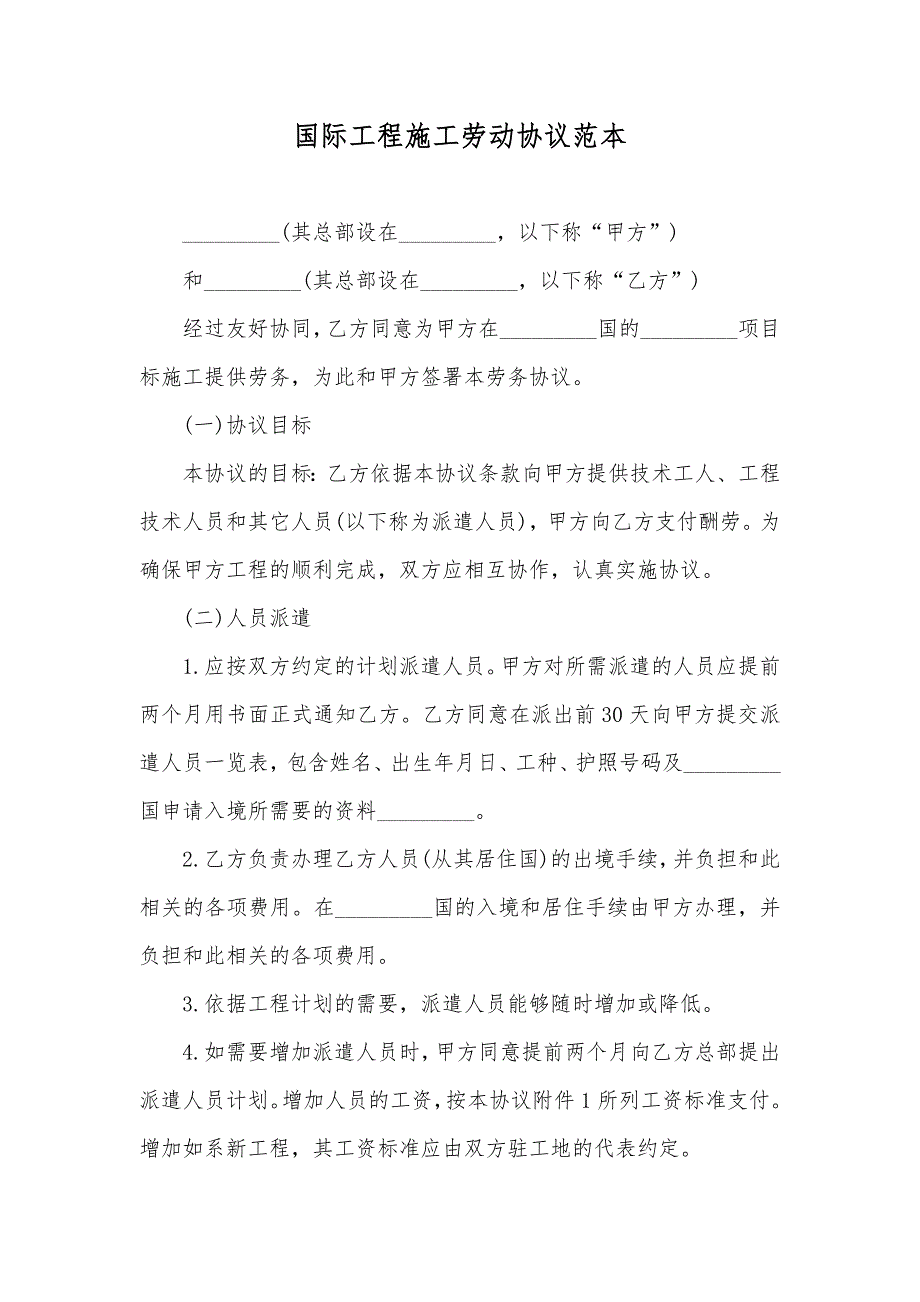 国际工程施工劳动协议范本
_________(其总部设在_________，以下称“甲方”)
和_________(其总部设在_________，以下称“乙方”)
经过友好协同，乙方同意为甲方在_________国的_________项目
标施工提供劳务，为此和甲方签署本劳务协议。
(一)协议目标
本协议的目标：乙方依据本协议条款向甲方提供技术工人、工程
技术人员和其它人员(以下称为派遣人员)，甲方向乙方支付酬劳。为
确保甲方工程的顺利完成，双方应相互协作，认真实施协议。
(二)人员派遣
1.应按双方约定的计划派遣人员。甲方对所需派遣的人员应提前
两个月用书面正式通知乙方。乙方同意在派出前30天向甲方提交派
遣人员一览表，包含姓名、出生年月日、工种、护照号码及_________
国申请入境所需要的资料_________。
2.乙方负责办理乙方人员(从其居住国)的出境手续，并负担和此
相关的各项费用。在_________国的入境和居住手续由甲方办理，并
负担和此相关的各项费用。
3.依据工程计划的需要，派遣人员能够随时增加或降低。
4.如需要增加派遣人员时，甲方同意提前两个月向乙方总部提出
派遣人员计划。增加人员的工资，按本协议附件1所列工资标准支付。
增加如系新工程，其工资标准应由双方驻工地的代表约定。